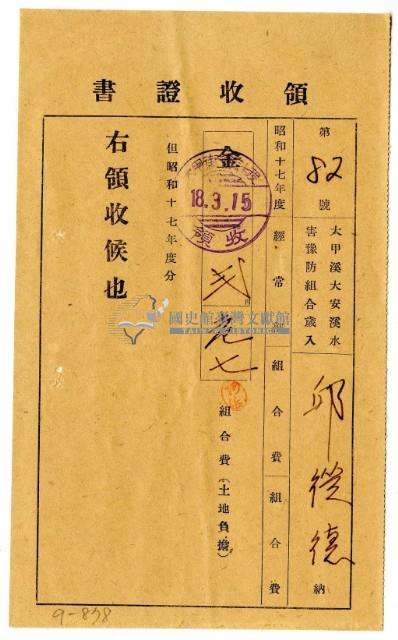 領收證書
第82號
大甲溪大安溪水
害豫防組合歲入
邱從德 納
昭和十七年度 經常部 組合費 組合費
金
組合費(土地負擔)
但昭和十七年度分
右領收候也
18.3.15
領收
國史館臺灣文獻館
TAIWAN HISTORICA
9-838